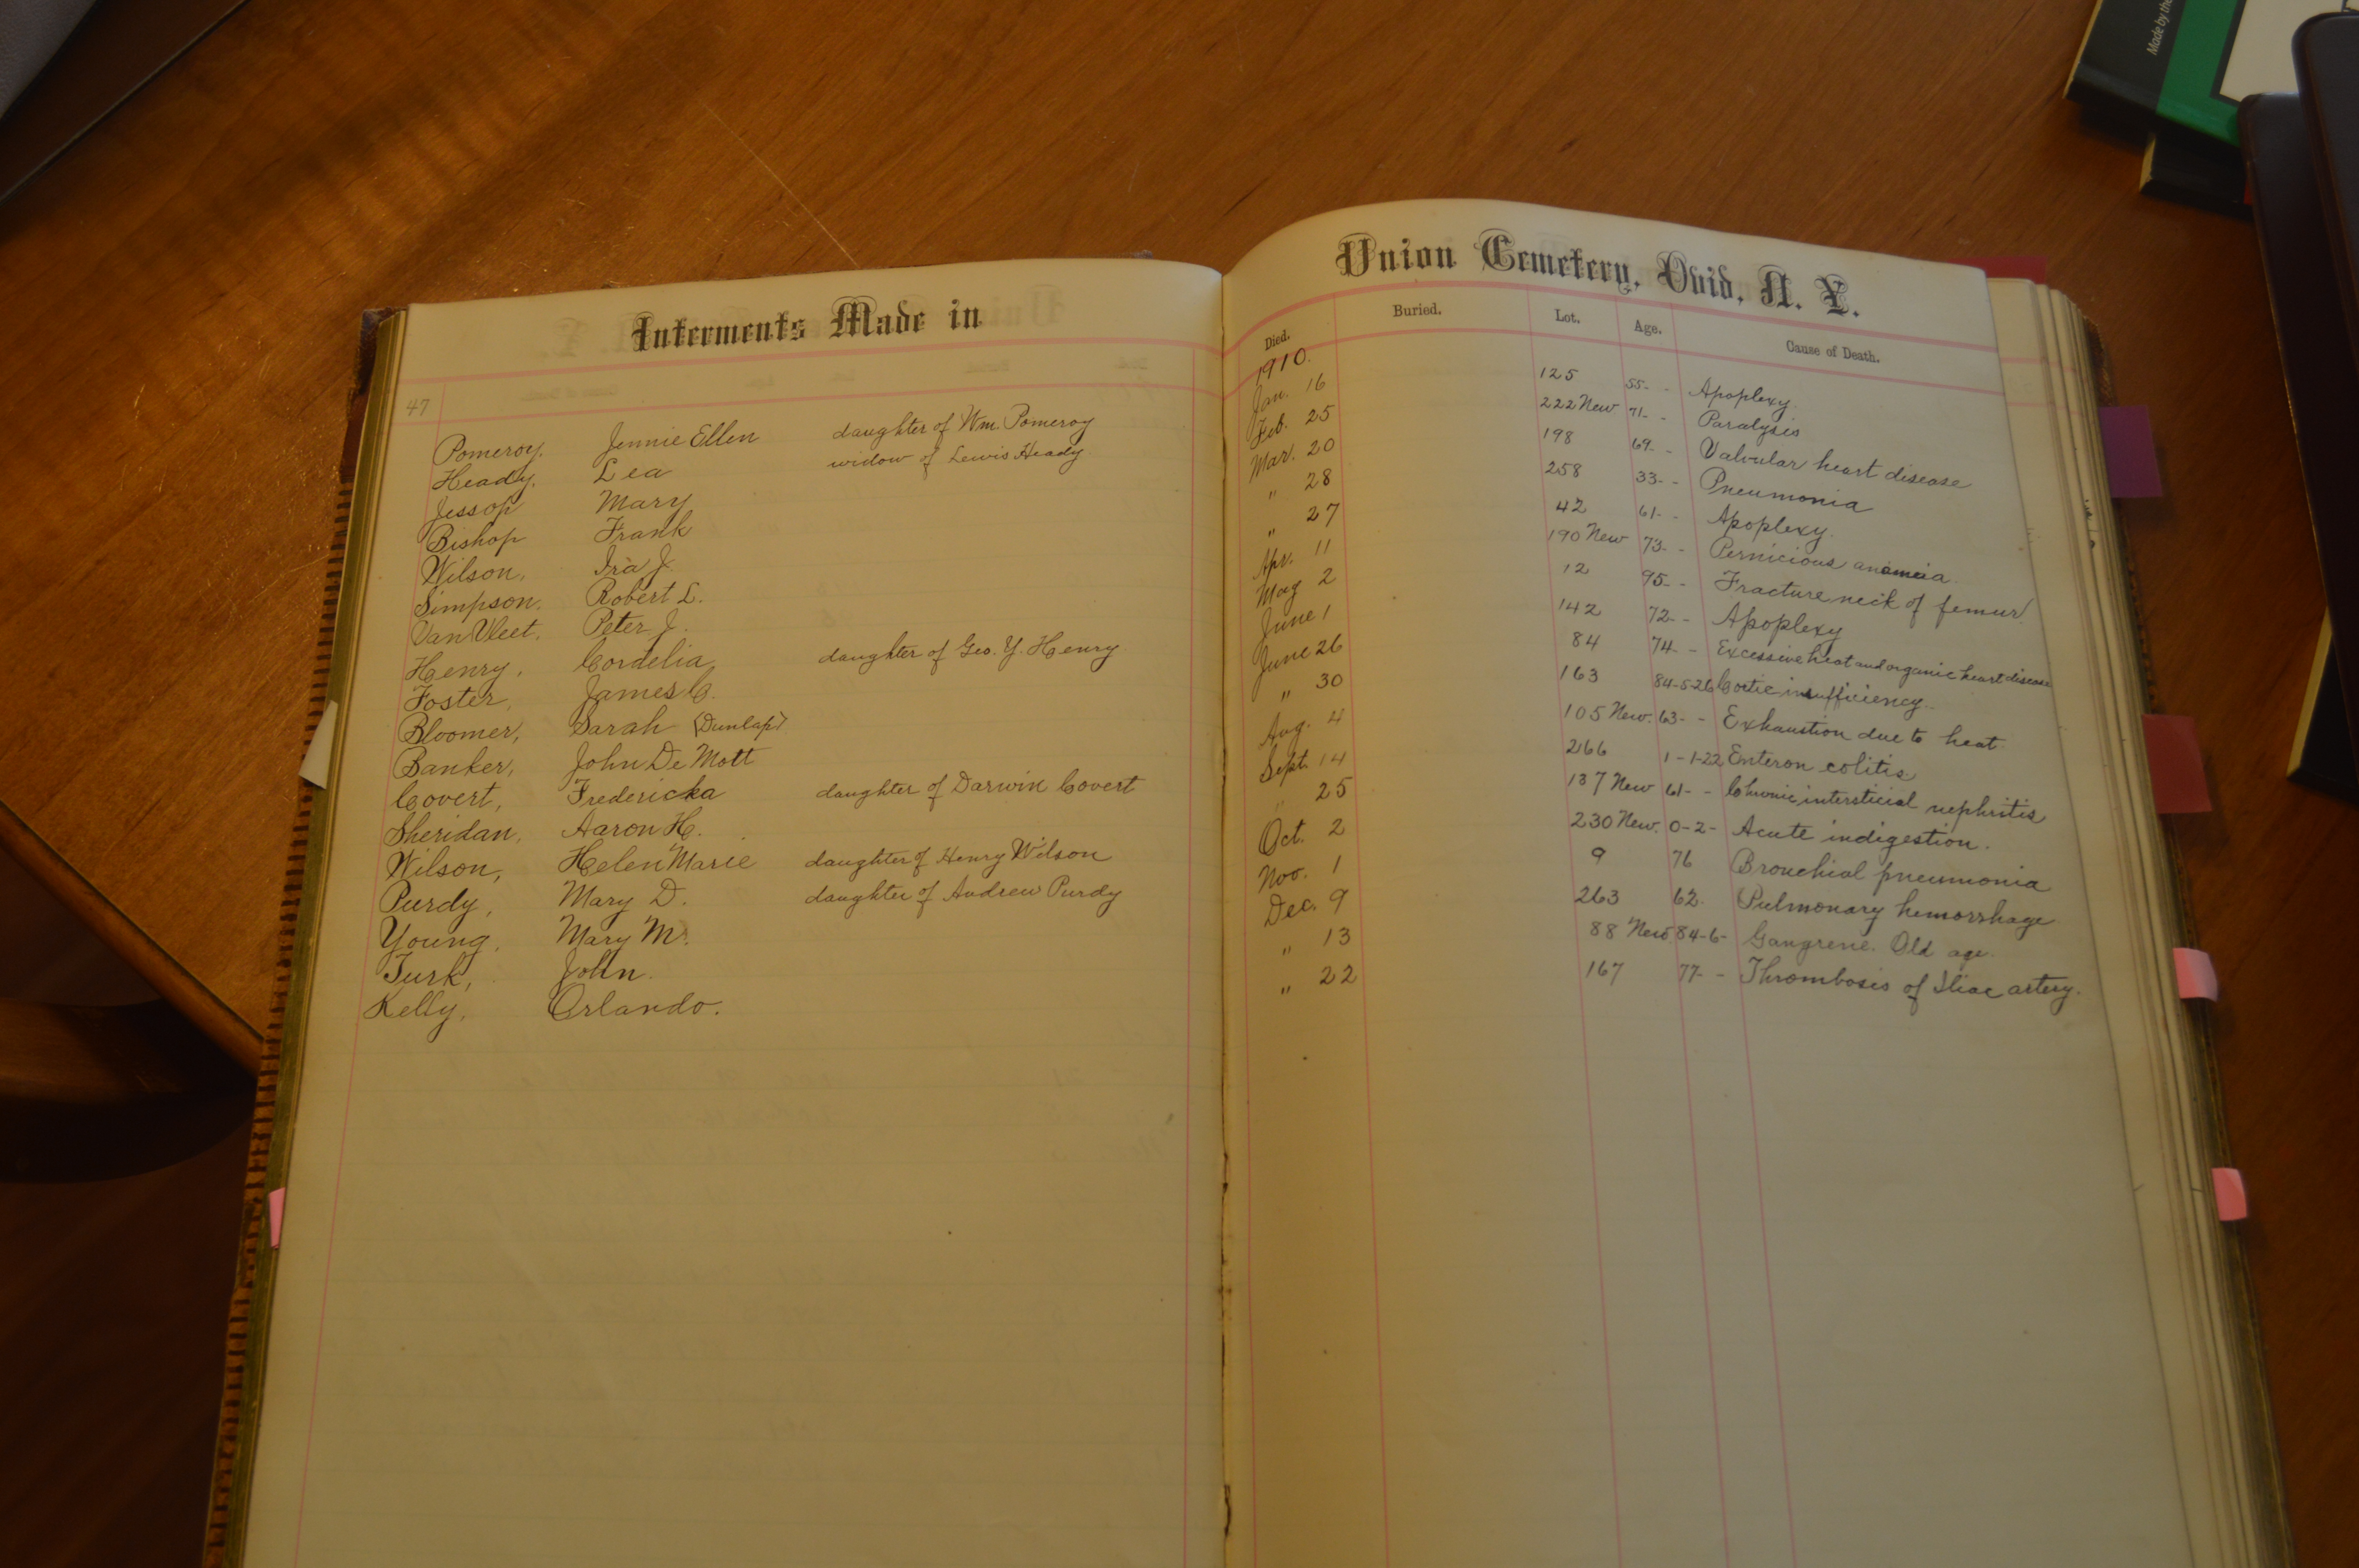 Made by the
Interments Made in
47
Pomeroy, Jennie Ellen daughter of Wm. Pomeroy
Heady, Lea widow of Lewis Heady
Jessop Mary
Bishop Frank
Wilson, Ira J.
Simpson, Robert L.
Van Vleet, Peter J.
Henry, Cordelia daughter of Geo. Y. Henry
Foster, James C.
Bloomer, Sarah (Dunlap)
Banker, John De Mott
Covert, Fredericka daughter of Darwin Covert
Sheridan, Aaron H.
Wilson, Helen Marie daughter of Henry Wilson
Purdy, Mary D. daughter of Andrew Purdy
Young, Mary M.
Turk, John.
Kelly, Orlando.
Union Cemetery, Ovid, N. Y.
Died. Buried. Lot. Age. Cause of Death.
1910.
Jan. 16 125 55- - Apoplexy.
Feb. 25 222 New 71- - Paralysis
Mar. 20 198 69- - Valvular heart disease
" 28 258 33- - Pneumonia
" 27 42 61- - Apoplexy.
Apr. 11 190 New 73- - Pernicious anameia.
May 2 12 95- - Fracture neck of femur
June 1 142 72- - Apoplexy
June 26 84 74- - Excessive heat and organic heart disease
" 30 163 84-5-26 insufficiency.
Aug. 4 105 New. 63- - Exhaustion due to heat.
Sept. 14 266 1-1-22 Enteron colitis
" 25 137 New 61- - Chronic intersticial nephritis
Oct. 2 230 New. 0-2- Acute indigestion.
Nov. 1 9 76 Bronchial pneumonia
Dec. 9 263 62. Pulmonary hemorrhage
" 13 88 New 84-6- Gangrene. Old age.
" 22 167 77- - Thrombosis of Iliac artery.